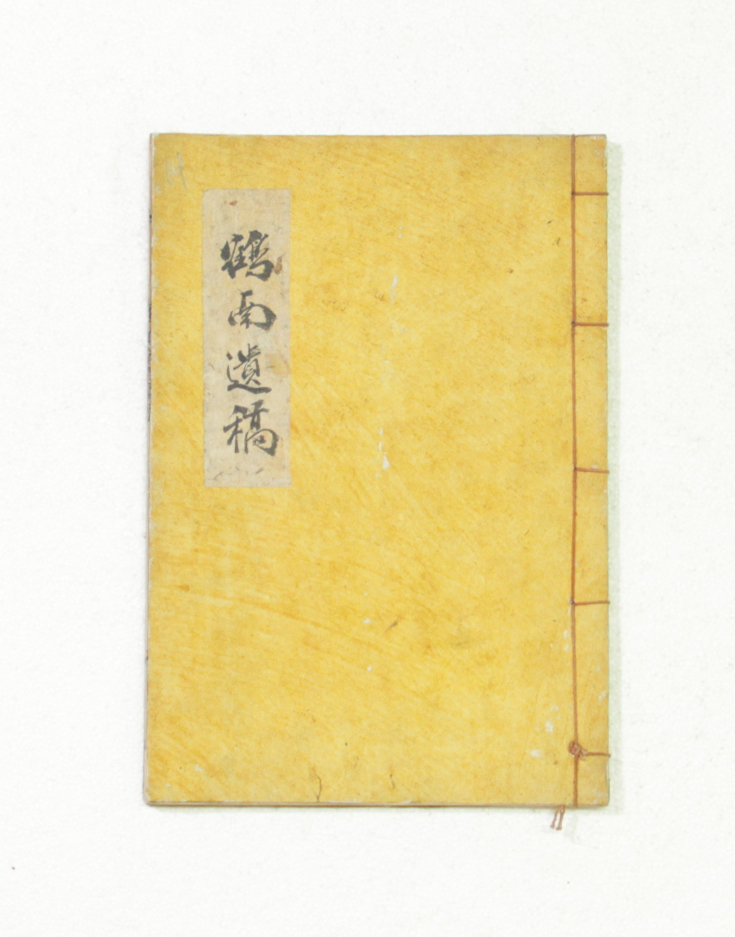 鶴南遺稿